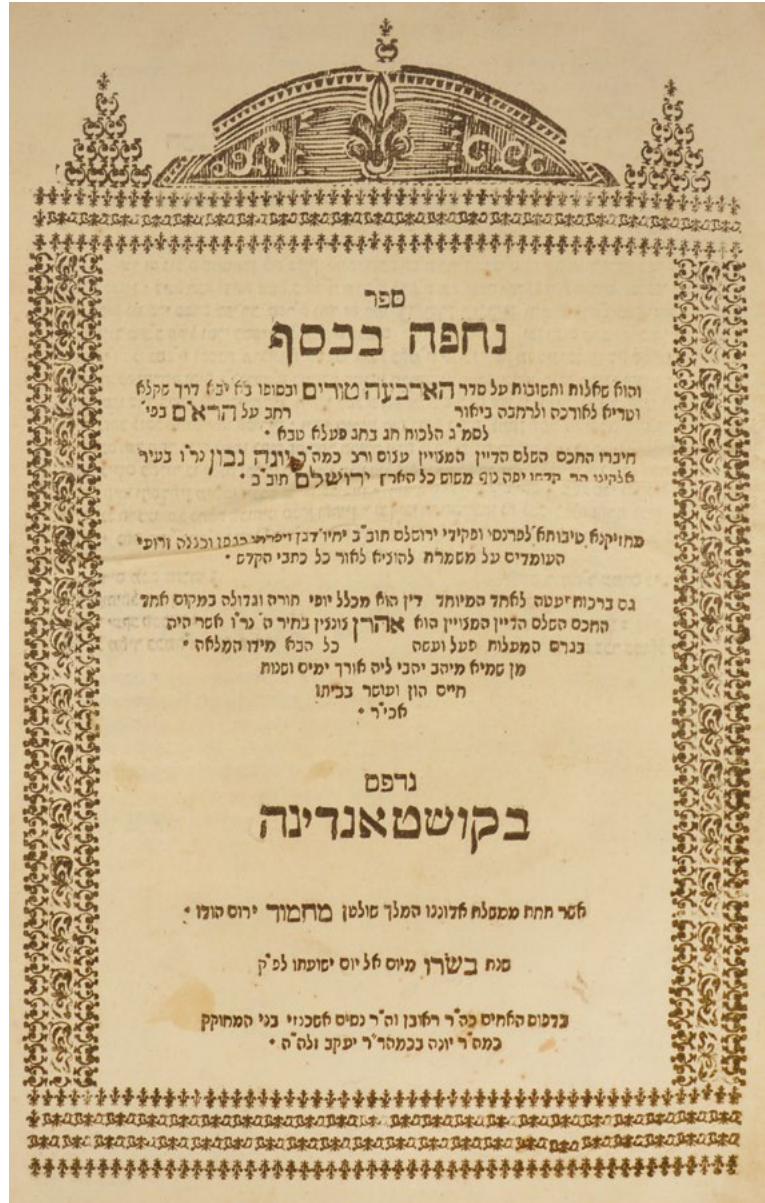 ספר
נחפה בכסף
והוא שאלות ותשובות על סדר הארבעה טורים ובסופו בא יבא דרך שקלא
וטריא לאורכה ולרחבה ביאור רחב על הרא״ם בפי׳
לסמ״ג הלכות חג בחג פעלא טבא •
חיברו החכם השלם הדיין המצויין עצום ורב כמה״ר יונה נבון נר״ו בעיר
אלקינו הר קדשו יפה נוף משוש כל הארץ ירושלם תוב״ב •
מחזיקנא טיבותא לפרנסי ופקידי ירושלם תוב״ב יחיו דגן ויפרחו כגפן וככלה זרועי
העומדים על משמרת להוציא לאור כל כתבי הקדש •
גם ברכות יעטה לאחד המיוחד דין הוא מכלל יופי תורה וגדולה במקום אחד
החכם השלם הדיין המצויין הוא אהרן בחיר ה׳ נר״ו אשר היה
בגרם המעלות פעל ועשה כל הבא מידו המלאה •
מן שמיא מיהב יהבי ליה אורך ימים ושנות
חיים הון ועושר בביתו
אכי״ר •
נדפס
בקושטאנדינה
אשר תחת ממשלת אדוננו המלך שולטן מחמוד ירום הודו •
שנת בשרו מיום אל יום ישועתו לפ״ק
בדפוס האחים כה״ר ראובן וה״ר נסים אשכנזי בני המחוקק
כמה״ר יונה בכמהר״ר יעקב זלה״ה •